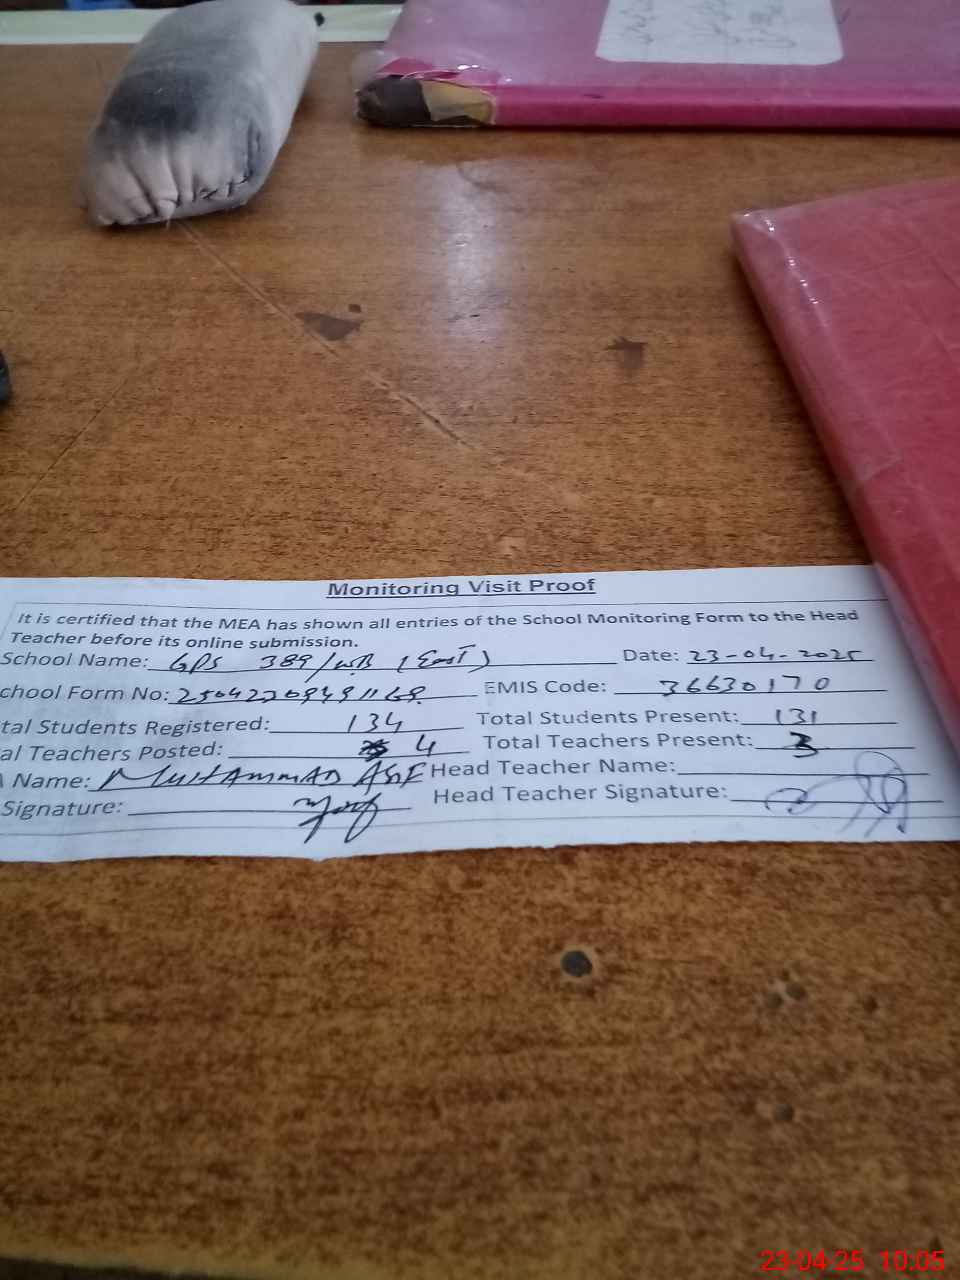 Monitoring Visit Proof
It is certified that the MEA has shown all entries of the School Monitoring Form to the Head
Teacher before its online submission.
School Name: GPS 389/WB (East) Date: 23-04-2025
chool Form No: EMIS Code: 36630170
tal Students Registered: 134 Total Students Present: 131
al Teachers Posted: 4 Total Teachers Present: 3
Name: MUHAMMAD ASIF Head Teacher Name:
Signature: Head Teacher Signature:
23-04-25 10:05